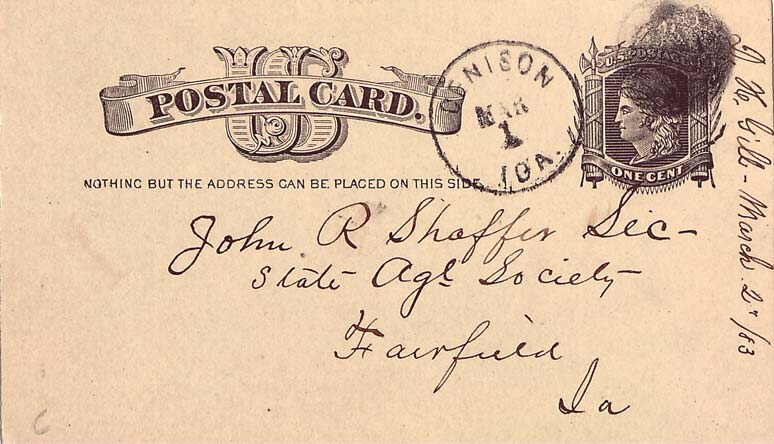 US
POSTAL CARD.
NOTHING BUT THE ADDRESS CAN BE PLACED ON THIS SIDE.
DENISON
MAR
1
IOA.
U.S. POSTAGE
ONE CENT
John R Shaffer Sec-
State Agl Society
Fairfield
Ia
D. W. Gill - March 2" /83